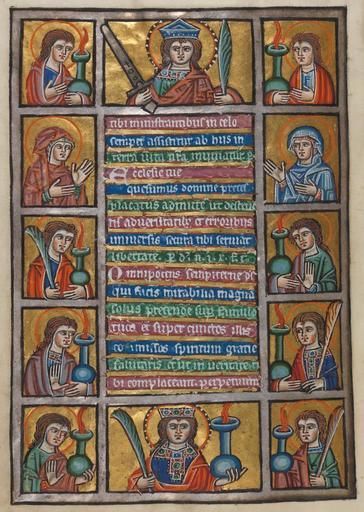 tibi ministrantibus in celo
semper assistitur ab hiis in
terra vita nr̄a muniatur p̄
Ecclesie tue
quesumus domine preces
placatus admitte ut destruc
tis adversitatibꝫ et erroribus
universis secura tibi serviat
libertate. p̄ dn̄
Omnipotens sempiterne ds̄
qui facis mirabilia magna
solus pretende sup̄ famulos
tuos et super cunctos illis
co īmissos spiritum gratie
salutaris et ut in veritate ti
bi complaceant perpetuum